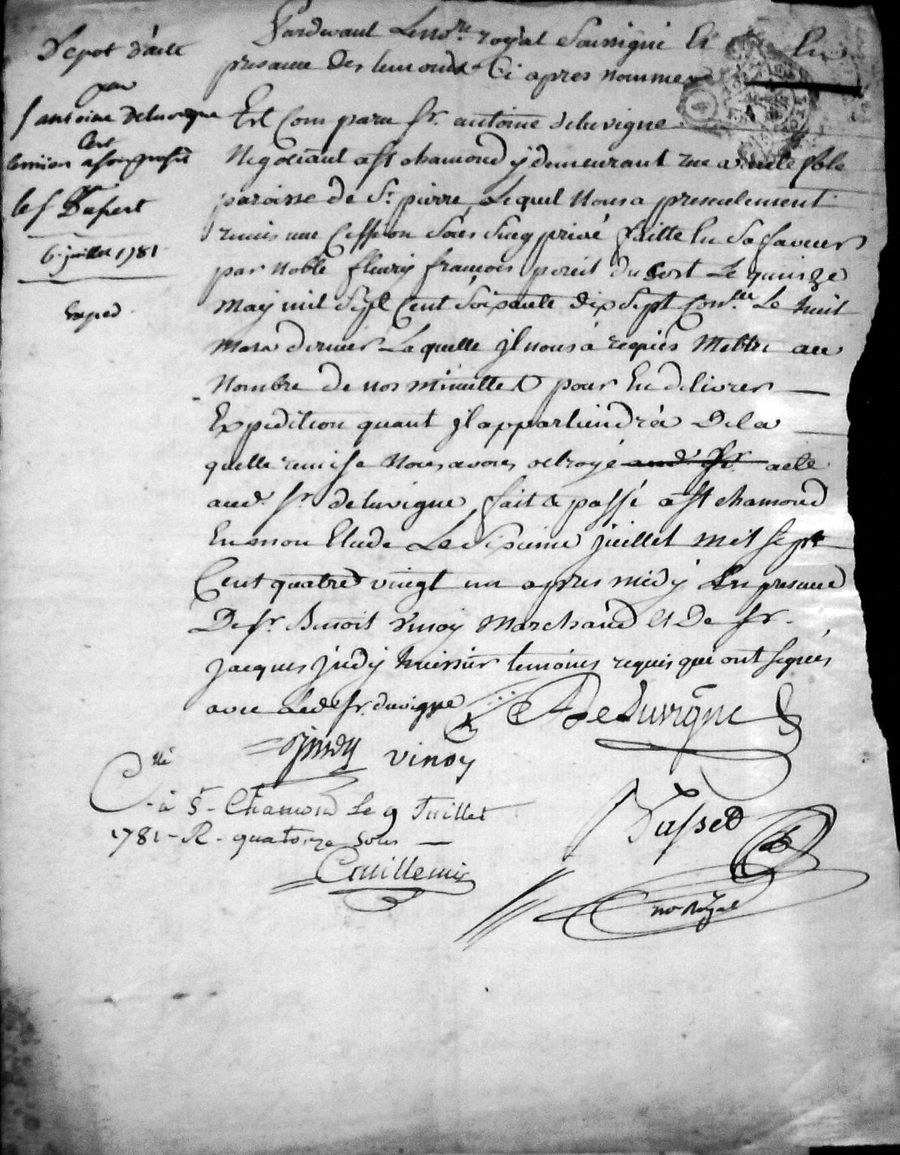 Depot d'acte
par
sr antoine Deluvigne
6 juillet 1781
Exped
Pardevant Le nore royal Soussigné Et En
presance des temoins Ci apres nommes
Est Comparu sr. antoine Deluvigne
Negociant a st chamond y demeurant rue
paroisse de St. pierre, Lequel Nous a presentement
remis une Cession sous Sing privé faitte En Sa faveur
par Noble fleury françois Le quinze
May mil Sept Cent Soixante dix Sept Conlle Le huit
Mars dernier Laquelle jl nous à requis Mettre au
Nombre de nos minuttes pour En delivrer
Expedition quant jl appartiendrà De la
quelle remise Nous avons octroyé acte
aud. Sr. deluvigne, fait & passé a st chamond
En mon Etude Le Sixieme juillet mil sept
Cent quatre vingt un apres midy En presance
De sr. Benoit Vinoy Marchand Et De sr.
Jacques judy huissier temoins requis qui ont signés
avec Led. sr. duvigne
ADeluvigne
judy vinoy
Cllé
à St. Chamond Le 9 Juillet
1781 - R. quatorze sols
nre Royal